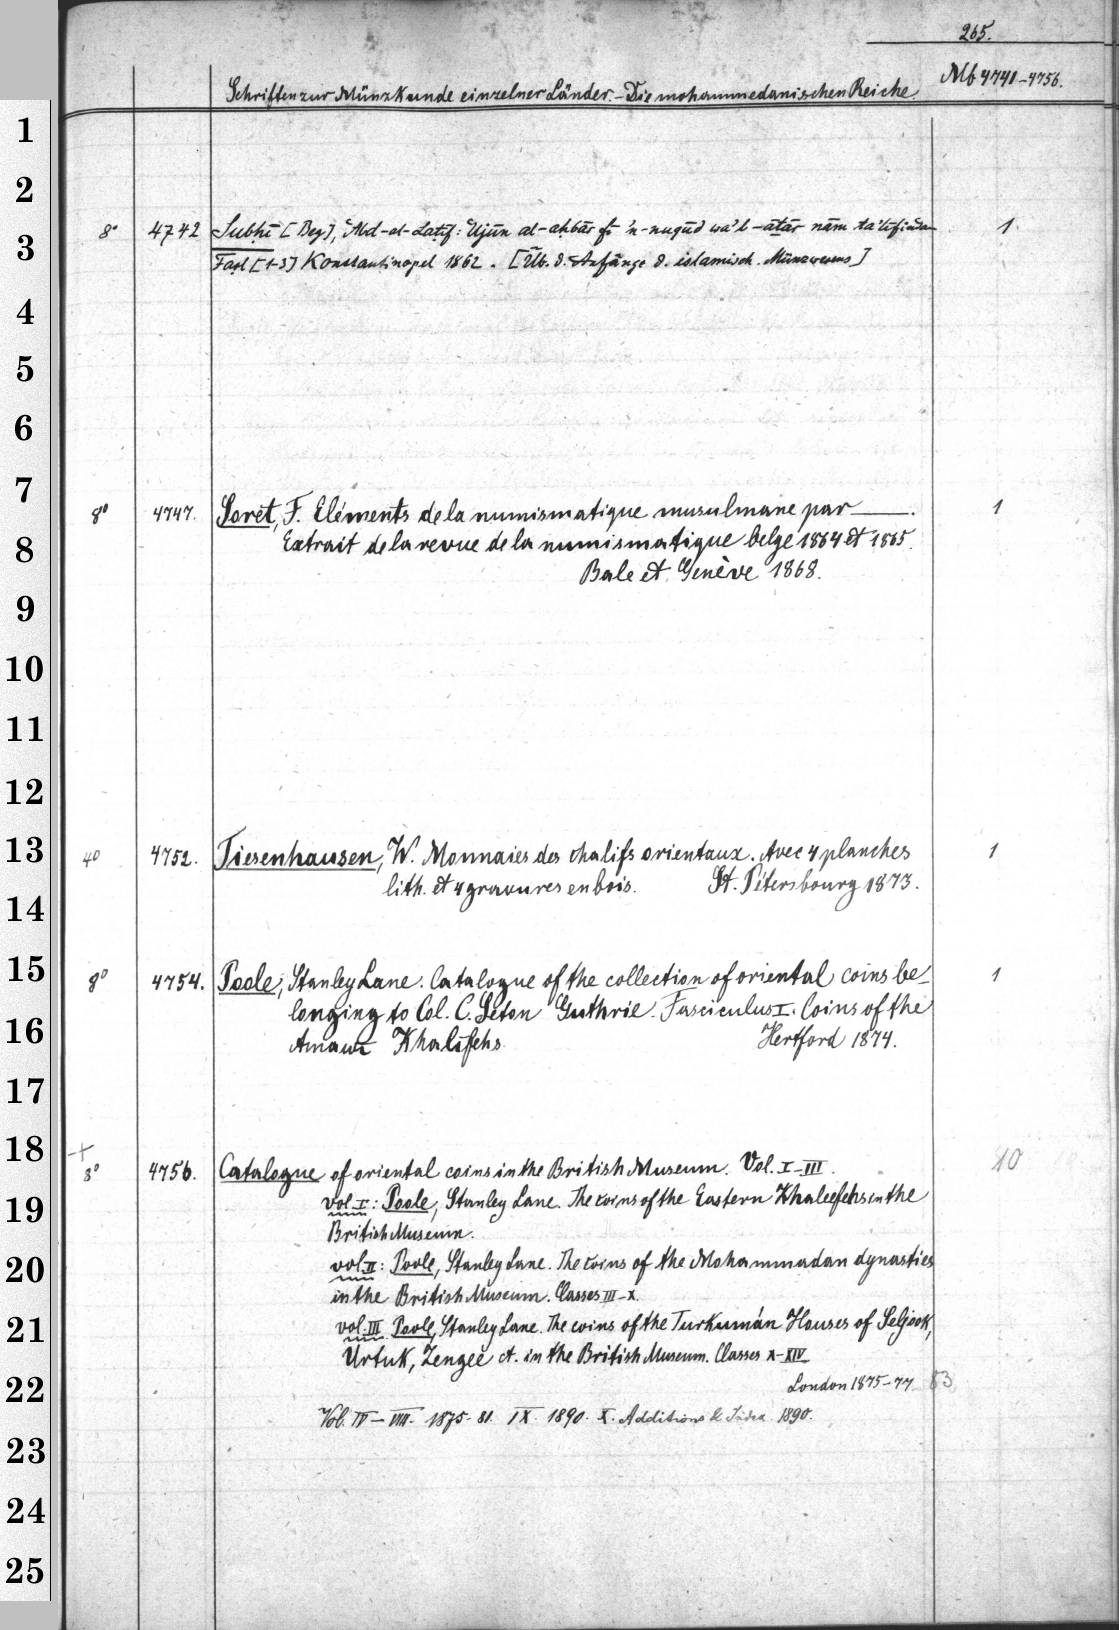 265.
Mb 4741-4756.
Schriften zur Münzkunde einzelner Länder. - Die mohammedanischen Reiche.
8° 4742 Subhī [Bey], ʿAbd-el-Latīf: ʿUjūn al-aḫbār fi 'n-nuqūd wa'l-aṯār nām ta'līfinden 1
Faṣl [1-3] Konstantinopel 1862. [Üb. d. Anfänge d. islamisch. Münzwesens]
8° 4747. Soret, F. Eléments de la numismatique musulmane par ___. 1
Extrait de la revue de la numismatique belge 1864 et 1865.
Bale et Genève 1868.
4° 4752. Tiesenhausen, W. Monnaies des chalifs orientaux. Avec 4 planches 1
lith. et 4 gravures en bois. St. Pétersbourg 1873.
8° 4754. Poole, Stanley Lane. Catalogue of the collection of oriental coins be- 1
longing to Col. C. Seton Guthrie. Fasciculus I. Coins of the
Amawi Khalifehs. Hertford 1874.
+
8° 4756. Catalogue of oriental coins in the British Museum. Vol. I-III. 10
vol. I: Poole, Stanley Lane. The coins of the Eastern Khaleefehs in the
British Museum.
vol. II: Poole, Stanley Lane. The coins of the Mohammadan dynasties
in the British Museum. Classes III-X.
vol. III Poole, Stanley Lane. The coins of the Turkumán Houses of Seljook,
Urtuk, Zengee ct. in the British Museum. Classes X-XIV
London 1875-77 83
Vol. IV-VIII. 1875-81. IX 1890. X. Additions & Index 1890.
1
2
3
4
5
6
7
8
9
10
11
12
13
14
15
16
17
18
19
20
21
22
23
24
25